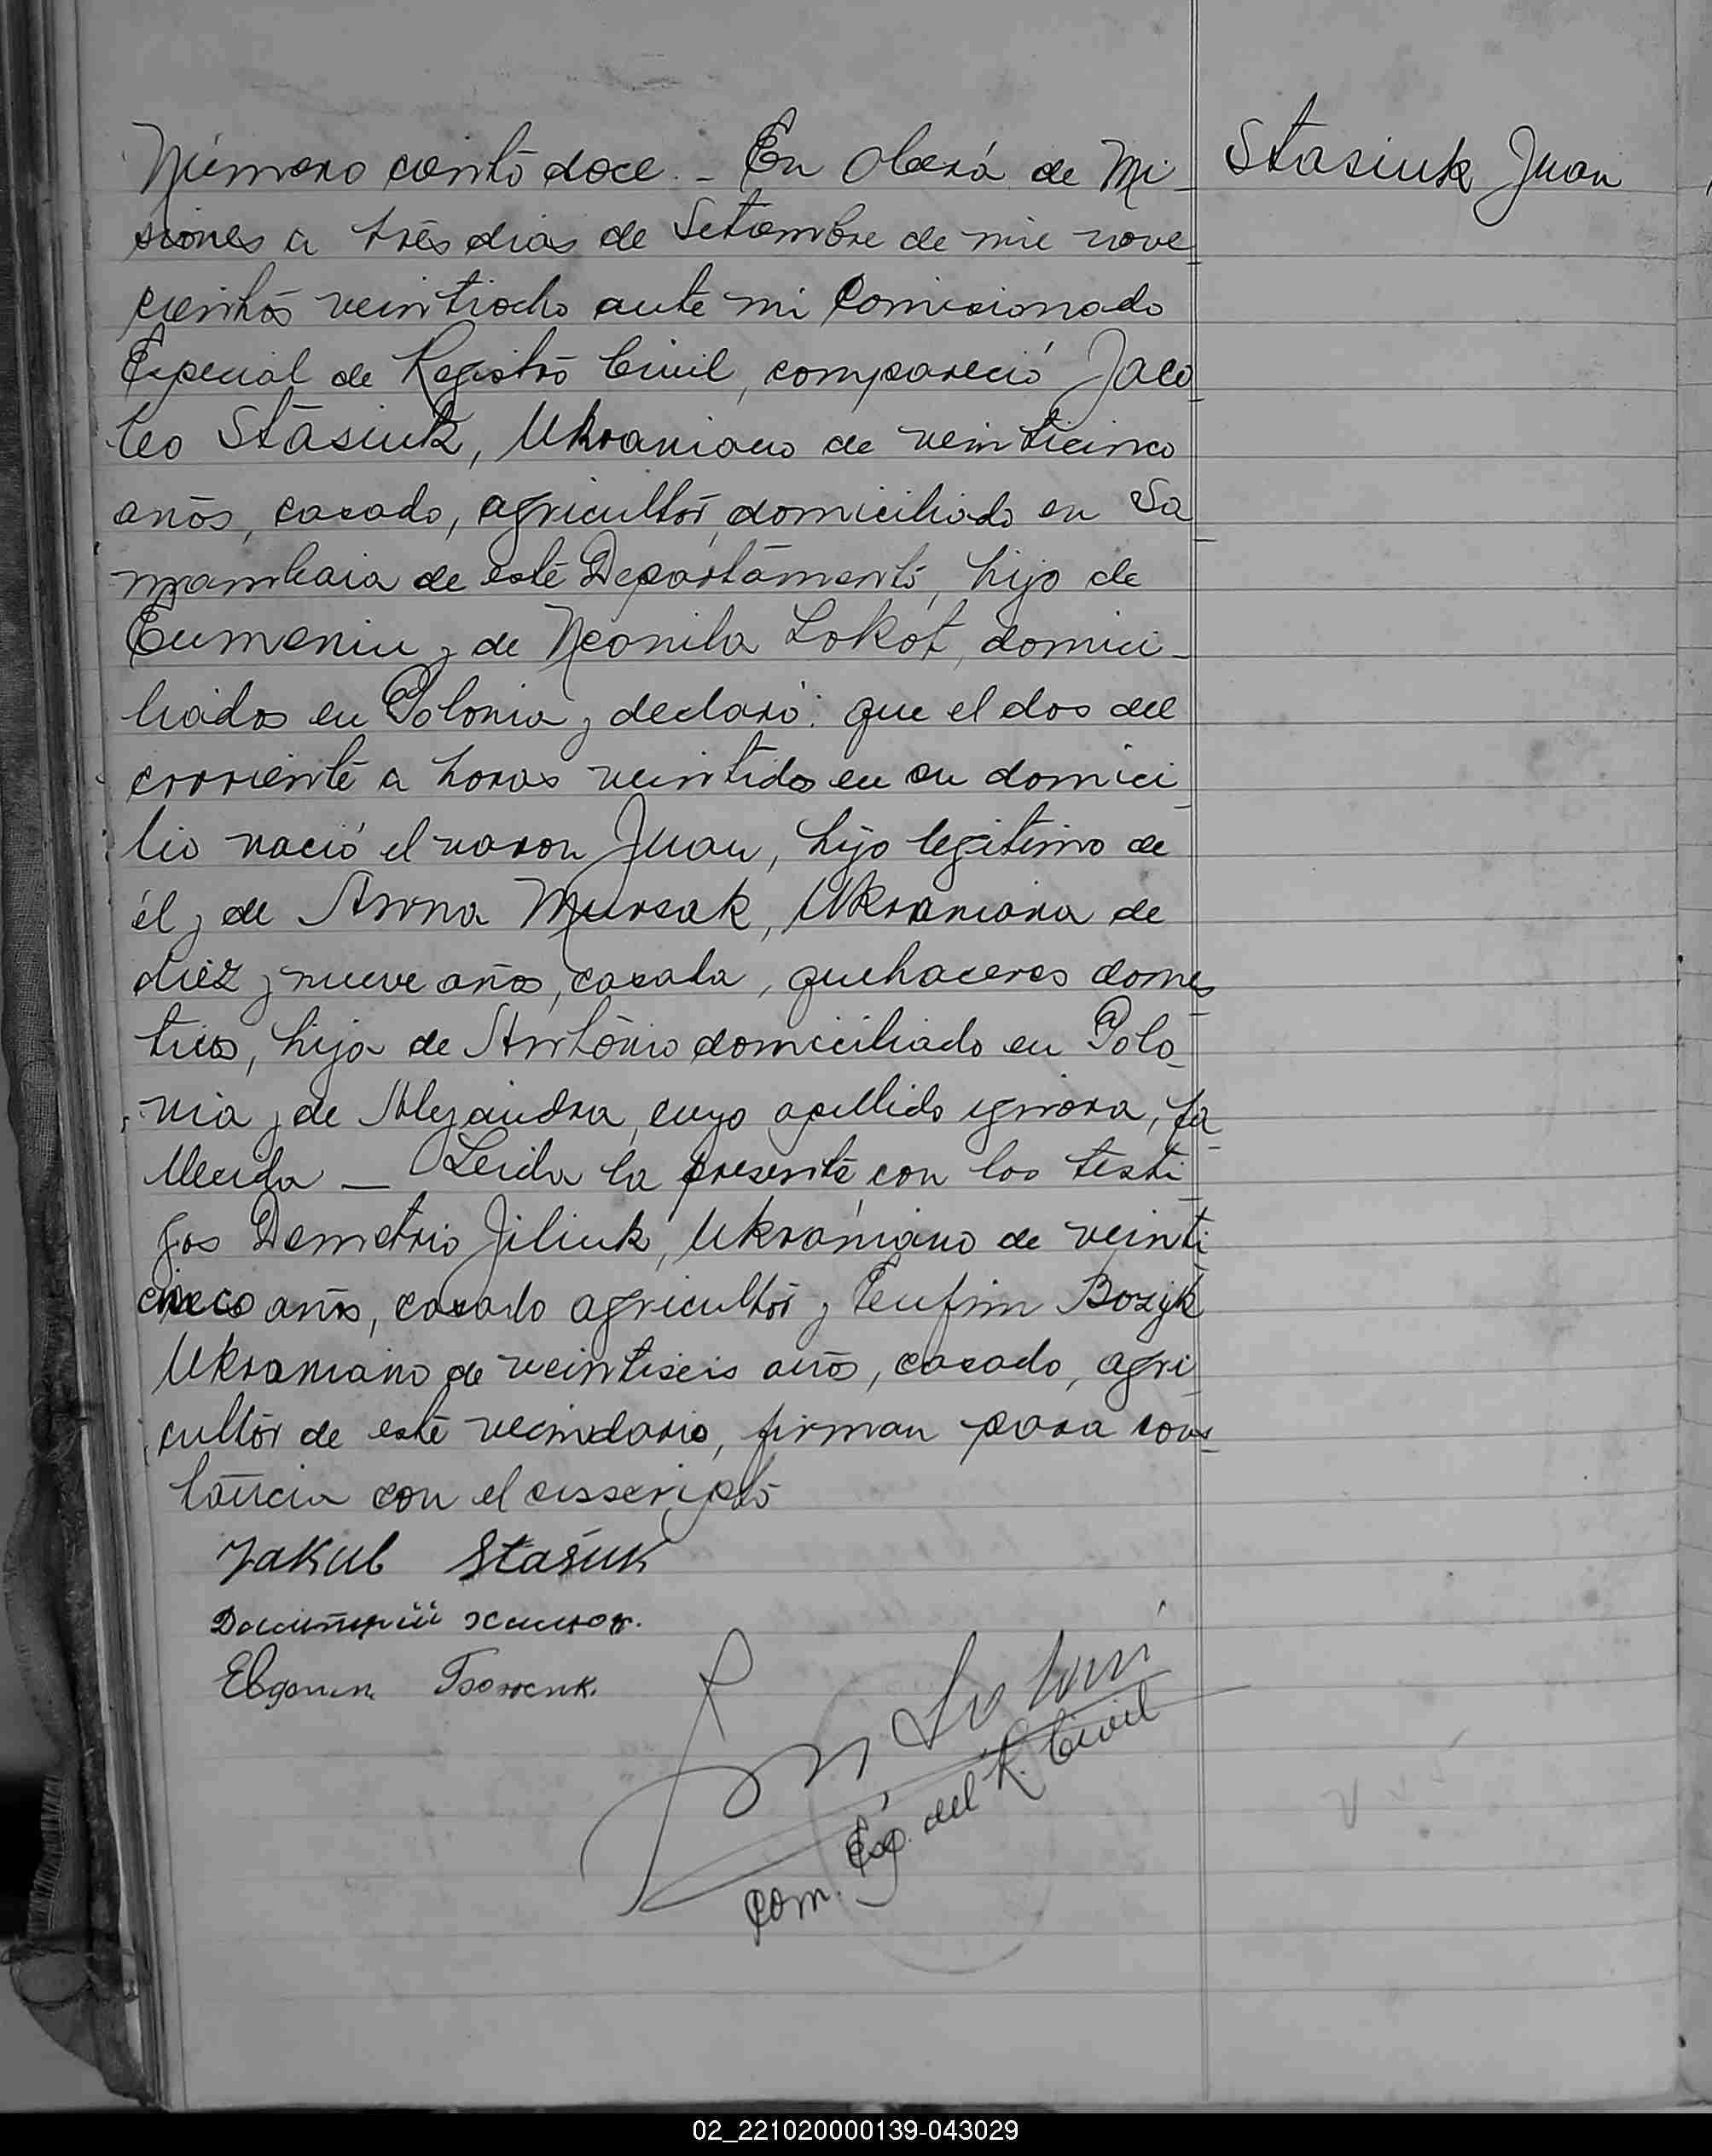 Número cientō doce. - En Oberá de Mi-
siones a trēs dias de Setiembre de mil nove
cientōs veintiocho ante mi Comisionado
Especial de Registrō Civil, compareció Jaco
bo Stāsiuk, Ukraniano de veinticinco
anōs, casado, agricultōr, domiciliado en Sa
mambaia de estē Departāmentō, hijo de
Eumeniu y de Neonila Lokot, domici-
liados en Polonia y declaró: que el dos del
corrientē a horas veintidos en su domici
lio nació el varon Juan, hijo legitimo de
él y de Anna Mursak, Ukraniana de
diez y nueve años, casada, quehaceres domes
ticos, hija de Antōnio domiciliado en Polo-
nia y de Alejandra, cuyo apellido ignora, fa
llecida — Leida la presentē con los testi
gos Demetrio Jiliuk, Ukraniano de veinti
cinco años, casado agricultōr y Eufim Bozyk
Ukraniano de veintiseis años, casado, agri
cultōr de estē vecindario, firman para cons
tāncia con el susscriptō
Stasiuk Juan
Jakub Staśuk
Дмитрий Жилюк.
Com. Esp. del R. Civil
02_221020000139-043029